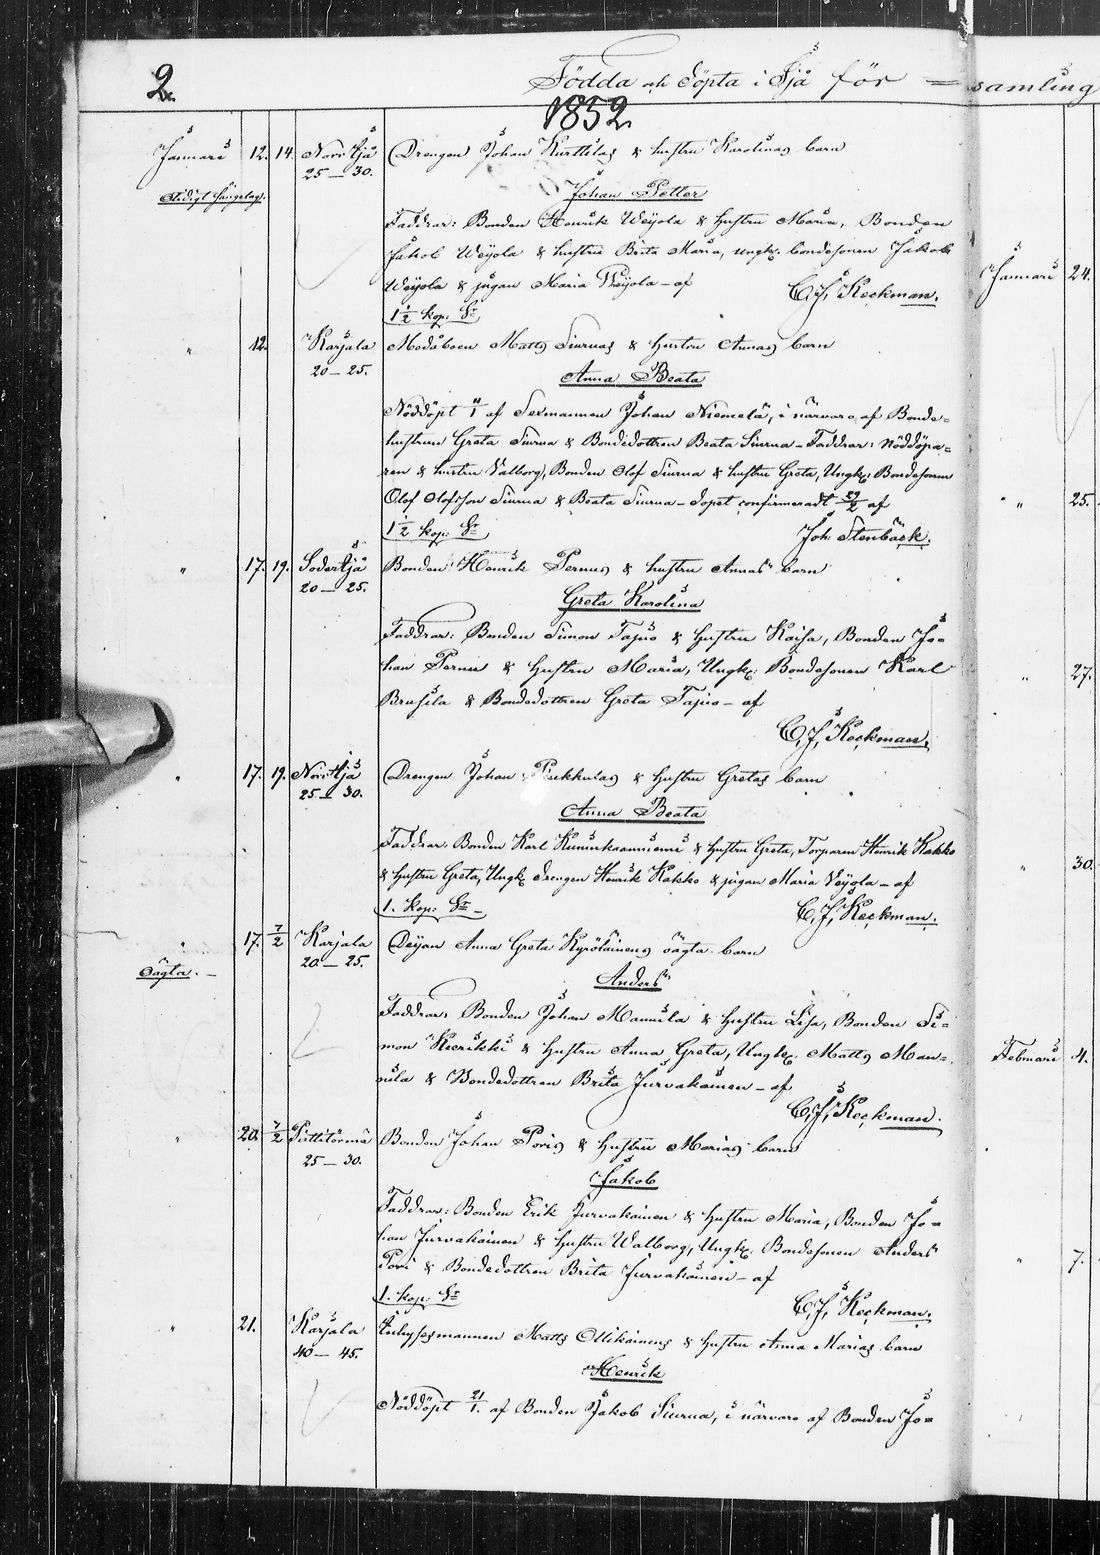 2.
Födda och döpta i Ijå för = samling
1852.
Januari 12. 14. Norr Ijå Drengen Johan Kurttilas & hustru Karolinas barn
25 — 30.
Johan Petter
Faddrar: Bonden Henrik Weijola & hustru Maria, Bonden
Jakob Weijola & hustru Brita Maria, ungk. bondesonen Jakob
Weijola & pigan Maria Weijola – af
C. J. Keckman.
1 1/2 kop. Sr
" 12. Karjala Matts Siuruas & hustru Annas barn
20 – 25.
Anna Beata
Nöddöpt af Sexmannen Johan Niemelä, i närvaro af Bonde-
hustrun Greta Siurua & Bondedottren Beata Siurua – Faddrar: nöddöpa-
ren & hustru Valborg, Bonden Olof Siurua & hustru Greta, Ungk: Bondesonen
Olof Olofsson Siurua & Beata Siurua – dopet confirmeradt af
1 1/2 kop. Sr
Joh. Stenbäck.
" 17. 19. Söder Ijå Bonden Henrik Pernus & hustru Annas barn
20 — 25.
Greta Karolina
Faddrar: Bonden Simon Tapio & hustru Kaisa, Bonden Jo-
han Pernu & hustru Maria, Ungk: Bondesonen Karl
Brusila & Bondedottren Greta Tapio – af
C. J. Keckman.
" 17. 19. Norr Ijå Drengen Johan & hustru Gretas barn
25 — 30.
Anna Beata
Faddrar: Bonden Karl & hustru Greta, Torparen Henrik Kakko
& hustru Greta, Ungk. drengen Henrik Kakko & pigan Maria Veijola – af
1. kop. Sr
C. J. Keckman.
" 17. 7/2 Karjala Anna Greta Kyröläinens oägta barn
20 – 25.
oägta. –
Anders
Faddrar: Bonden Johan Mannila & hustru Lisa, Bonden Si-
mon & hustru Anna Greta, Ungk. Matts Man-
nila & Bondedottren Brita Jurvakainen – af
C. J. Keckman.
" 20. 7/2 Bonden Johan Poris & hustru Marias barn
25 — 30.
Jakob
Faddrar: Bonden Erik Jurvakainen & hustru Maria, Bonden Jo-
han Jurvakainen & hustru Walborg, Ungk: Bondesonen Anders
Pori & Bondedottren Brita Jurvakainen – af
1. kop. Sr
C. J. Keckman.
" 21. Karjala Matts Ollikainens & hustru Anna Marias barn
40 — 45.
Henrik
Nöddöpt 21/1. af Bonden Jakob Siurua, i närvaro af Bonden Jo-
Januari 24.
" 25.
" 27.
" 30.
Februari 4.
" 7.